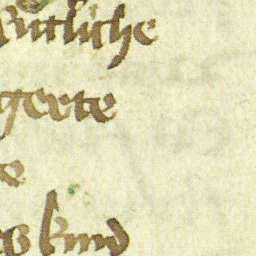 entliche
gerte
e
es kind